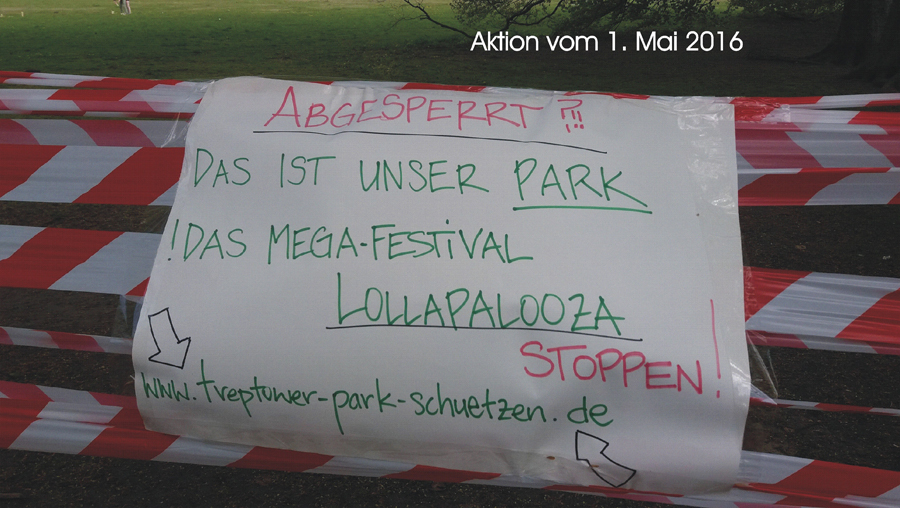 Aktion vom 1. Mai 2016
ABGESPERRT ?!!!
DAS IST UNSER PARK
!DAS MEGA-FESTIVAL
LOLLAPALOOZA
STOPPEN!
www.treptower-park-schuetzen.de